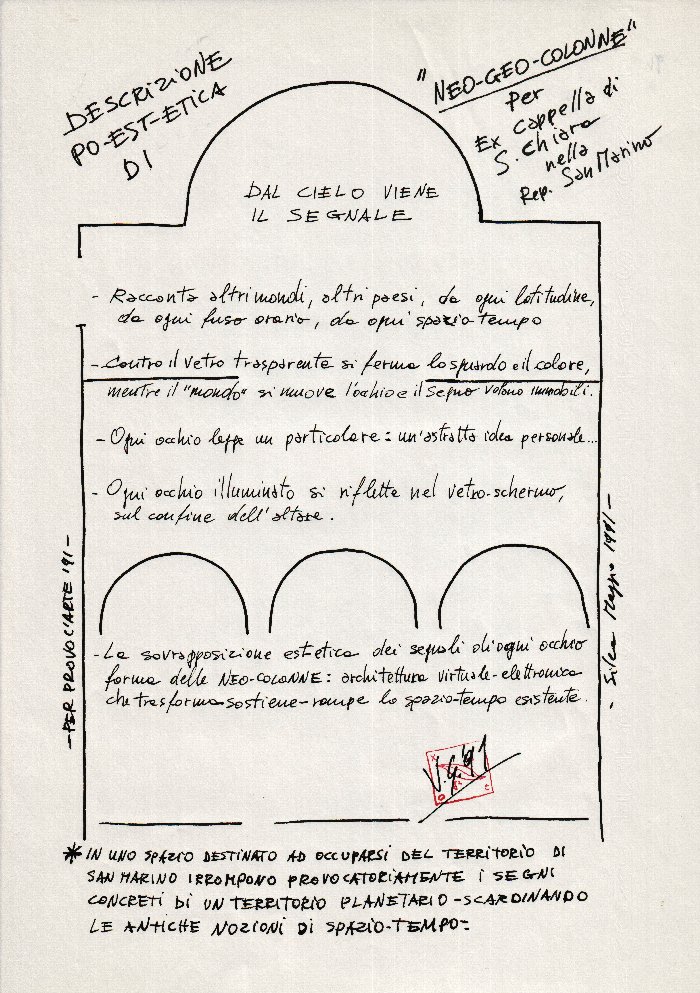 DESCRIZIONE
PO-EST-ETICA
DI
"NEO-GEO-COLONNE"
per
Ex cappella di
S. Chiara
nella
Rep. San Marino
DAL CIELO VIENE
IL SEGNALE
- Racconta altri mondi, altri paesi, da ogni latitudine,
da ogni fuso orario, da ogni spazio-tempo
- Contro il vetro trasparente si ferma lo sguardo e il colore,
mentre il "mondo" si muove l'occhio e il segno volano immobili.
- Ogni occhio legge un particolare: un'astratta idea personale...
- Ogni occhio illuminato si riflette nel vetro-schermo,
sul confine dell'altare.
- PER PROVOC'ARTE '91 -
- Silea Maggio 1991 -
- La sovrapposizione estetica dei segnali di ogni occhio
forma delle NEO-COLONNE: architettura virtuale-elettronica
che trasforma-sostiene-rompe lo spazio-tempo esistente.
V.G.'91
* IN UNO SPAZIO DESTINATO AD OCCUPARSI DEL TERRITORIO DI
SAN MARINO IRROMPONO PROVOCATORIAMENTE I SEGNI
CONCRETI DI UN TERRITORIO PLANETARIO - SCARDINANDO
LE ANTICHE NOZIONI DI SPAZIO-TEMPO-